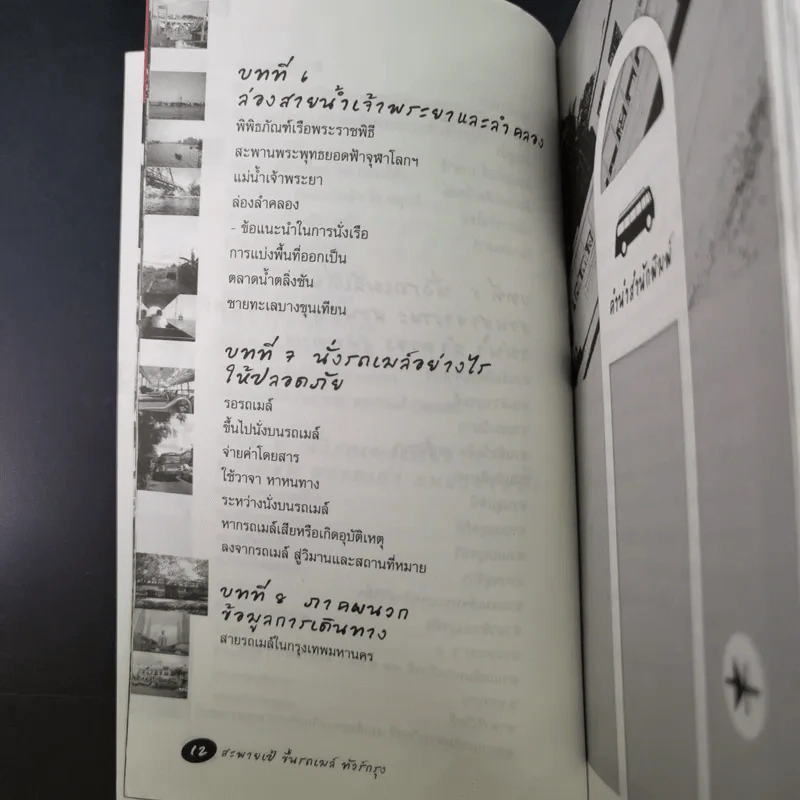 บทที่ 6
ล่องสายน้ำเจ้าพระยาและลำคลอง
พิพิธภัณฑ์เรือพระราชพิธี
สะพานพระพุทธยอดฟ้าจุฬาโลกฯ
แม่น้ำเจ้าพระยา
ล่องลำคลอง
- ข้อแนะนำในการนั่งเรือ
การแบ่งพื้นที่ออกเป็น
ตลาดน้ำตลิ่งชัน
ชายทะเลบางขุนเทียน
บทที่ 7 นั่งรถเมล์อย่างไร
ให้ปลอดภัย
รอรถเมล์
ขึ้นไปนั่งบนรถเมล์
จ่ายค่าโดยสาร
ใช้วาจา หาหนทาง
ระหว่างนั่งบนรถเมล์
หากรถเมล์เสียหรือเกิดอุบัติเหตุ
ลงจากรถเมล์ สู่วิมานและสถานที่หมาย
บทที่ 8 ภาคผนวก
ข้อมูลการเดินทาง
สายรถเมล์ในกรุงเทพมหานคร
12 สะพายเป้ ขึ้นรถเมล์ ทัวร์กรุง
คำนำสำนักพิมพ์